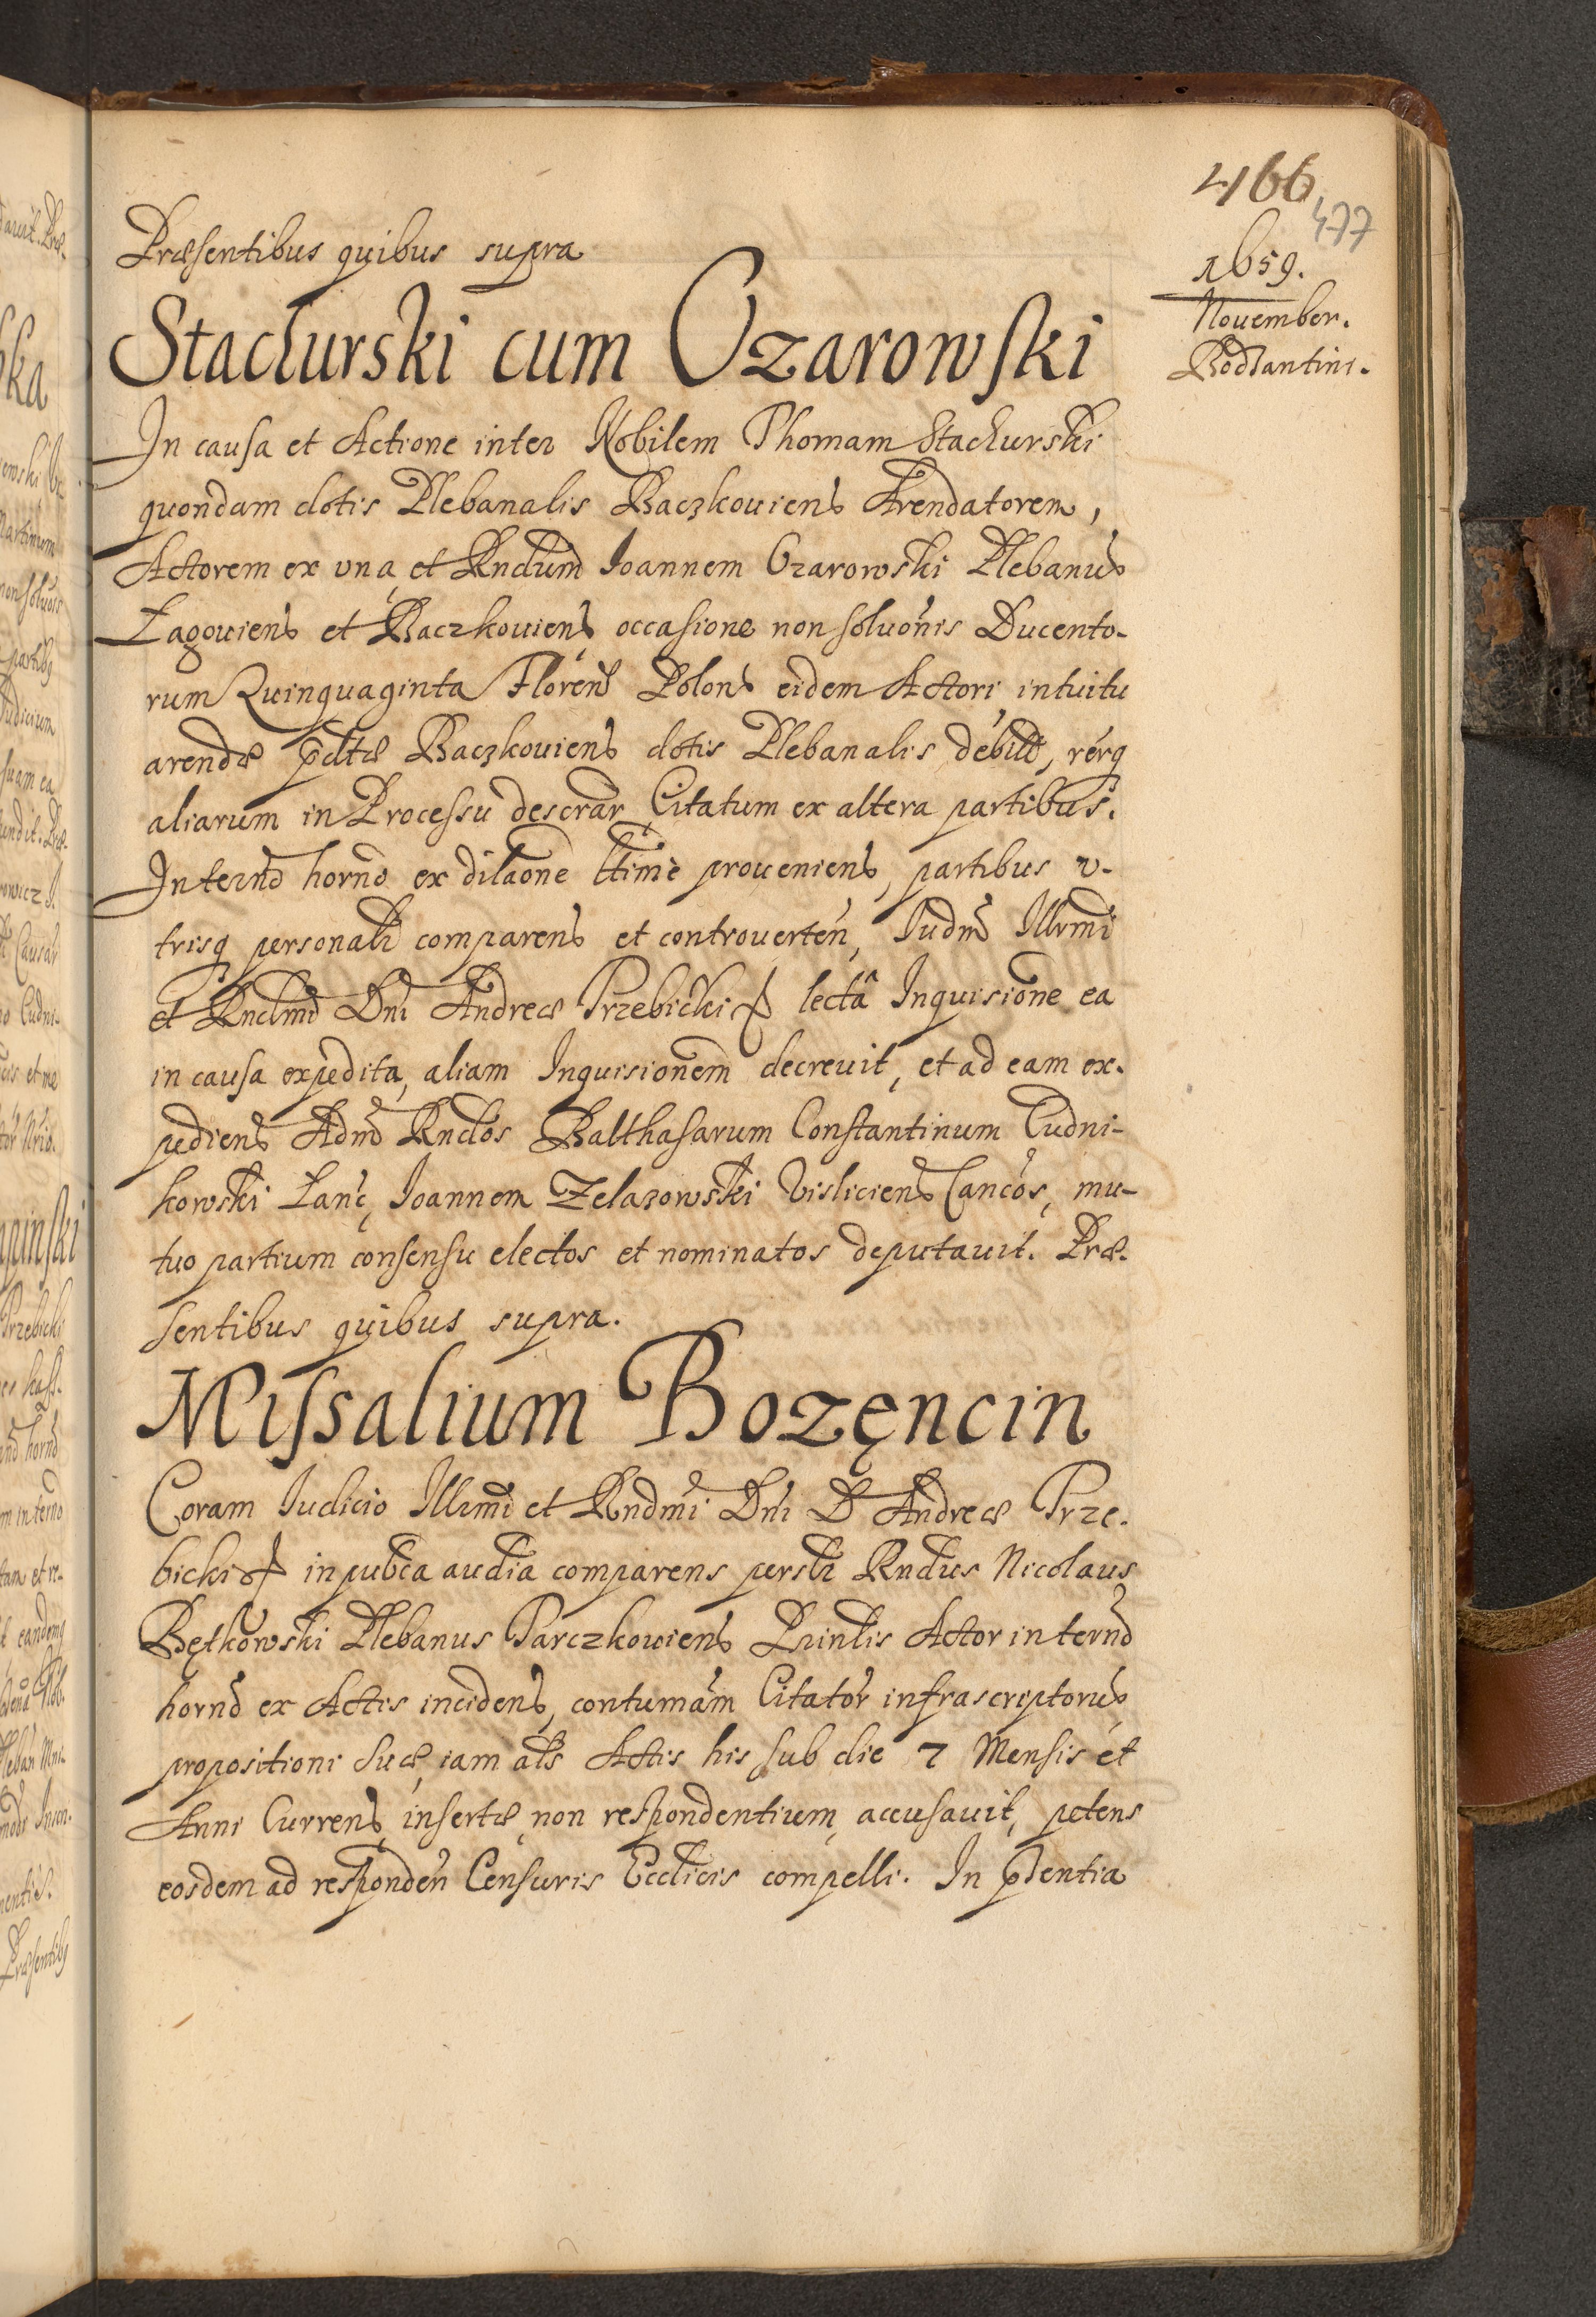 466.
477
1659.
Nouember.
Bodzantini.
Præsentibus quibus supra
Stachurski cum Ozarowski
In causa et Actione inter Nobilem Thomam Stachurski
quondam dotis Plebanalis Baczkouiens Arendatorem,
Actorem ex una et Rndum Ioannem Ozarowski Plebanus
Łagouiens et Baczkouiens occasione non soluonis Ducento-
rum Quinquaginta Floren Polons eidem Actori intuitu
arendæ pdtæ Baczkouiens dotis Plebanalis debit, rerq
aliarum in Processu descrar Citatum ex altera partibus.
In ternd hornd ex dilaone ltime proueniens, partibus v-
trisq personalr comparens et controuerten, Iudm Illrmi
et Rndmi Dni Andreæ Trzebicki lectâ Inquisione ea
in causa expedita, aliam Inquisionem decreuit, et ad eam ex-
pediens Admd Rndos Balthasarum Constantinum Cudni-
kowski Lanc, Ioannem Zelazowski Visliciens Cancos, mu-
tuo partium consensu electos et nominatos deputauit. Præ-
sentibus quibus supra.
Missalium Bozęncin
Coram Iudicio Illrmi et Rndmi Dni D Andreæ Trze-
bicki in pubca audia comparens persltr Rndus Nicolaus
Bętkowski Plebanus Parczkouiens Prinlis Actor in ternd
hornd ex Actis incidens, contumam Citator infrascriptorus
propositioni suæ iam als Actis his sub die 7 Mensis et
Anni Currens insertæ non respondentium accusauit, petens
eosdem ad responden Censuris Ecclicis compelli. In pdentia